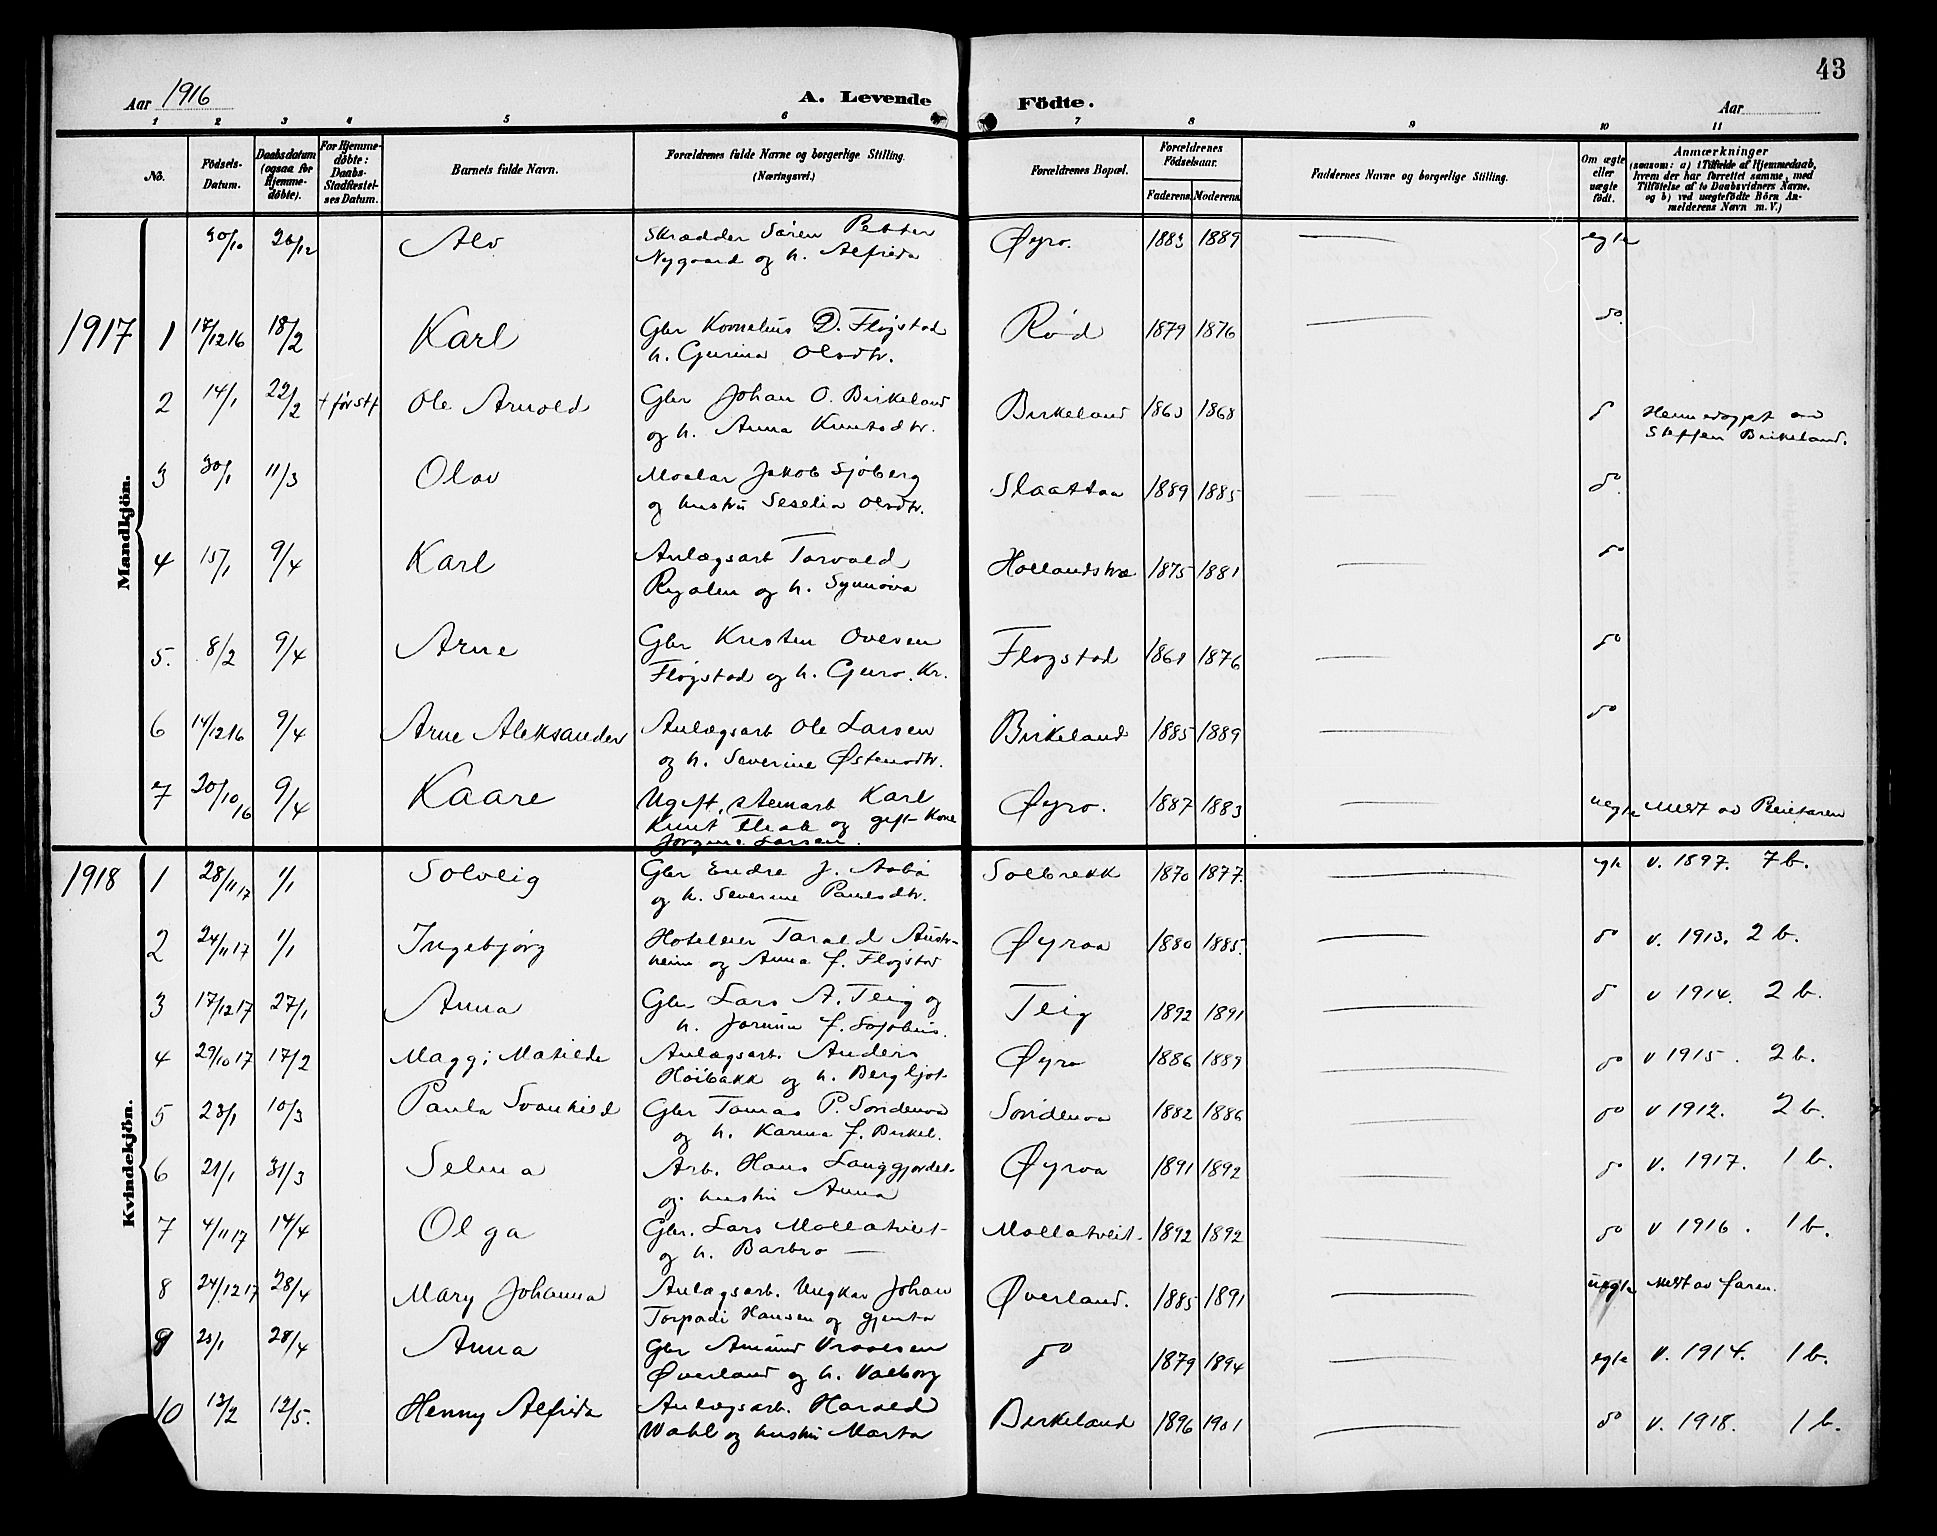 43
Aar 1916
A. Levende Födte.
Aar
1 2 3 4 5 6 7 8 9 10 11
No.
Födsels-Datum.
Daabsdatum (ogsaa for Hjemme-döbte).
For Hjemme-döbte: Daabs-Stadfæstel-ses Datum.
Barnets fulde Navn.
Forældrenes fulde Navne og borgerlige Stilling. (Næringsvei.)
Forældrenes Bopæl.
Forældrenes Födselsaar.
Faderens. Moderens.
Faddernes Navne og borgerlige Stilling.
Om ægte eller uægte födt.
Anmærkninger
(saasom: a) i Tilfælde af Hjemmedaab, hvem der har forrettet samme, med Tilföielse af to Daabsvidners Navne, og b) ved uægtefödte Börn An-melderens Navn m. V.)
Mandkjön.
30/10 26/12 Alv Skrædder Søren Petter Øyro. 1883 1889 — egte
Nygaard og h. Alfrida
1917 1 17/12 16 18/2 Karl Gbr Kornelius D. Fløgstad Rød 1879 1876 — do.
h. Gurina Olsdtr.
2 14/1 22/2 + før stf Ole Arnold Gbr Johan O. Birkeland Birkeland 1863 1868 do Hjemmedøypt av
og h. Anna Knutsdtr. Steffen Birkeland.
3 30/1 11/3 Olav Maalar Jakob Sjøberg Slaattaa 1889 1885 — do.
og hustru Seselia Olsdtr.
4 15/1 9/4 Karl Anlægsarb Torvald 1875 1881 — do
og h. Synnøva
5. 8/2 9/4 Arne Gbr Kristen Ovesen Fløgstad 1868 1876 — do
Fløgstad og h. Guro Kr.
6 14/12 16 9/4 Arne Aleksander Anlægsarb Ole Larsen Birkeland 1885 1889 — do
og h. Severine Østensdtr.
7 20/10 16 9/4 Kaare Ugift, Karl Øyro. 1887 1883 — uegte Meldt av
Knut og gift Kone
Jorgine Larsen.
Kvindekjön.
1918 1 28/11 17 1/1 Solveig Gbr Endre J. Aabø Solbrekk 1870 1877. — egte v. 1897. 7 b.
og h. Severine Paulsdtr.
2 24/11 17 1/1 Ingebjørg Hoteleier Tarald Austr- Øyraa 1880 1885. — do v. 1913. 2 b.
heim og Anna f. Fløgstad
3 17/12 17 27/1 Anna Gbr Lars A. Teig og Teig 1892 1891 — do v 1914. 2 b.
h. Jorunn f.
4 29/10 17 17/2 Maggi Matilde Anlægsarb. Anders Øyro 1886 1889 — do v 1915. 2 b.
Høibakk og h. Bergljot
5 23/1 10/3 Paula Svanhild Gbr Tomas P. Søndenaa Søndenaa 1882 1886 — do v 1912. 2 b.
og h. Karina f. Birkel.
6 21/1 31/3 Selma Arb. Hans Langgjordet Øyraa 1891 1892 — do v. 1917. 1 b.
og hustru Anna
7 4/11 17 14/4 Olga Gbr. Lars Mollatveit Mollatveit. 1892 1892 — do v 1916. 1 b.
og h. Barbro —
8 24/12 17 28/4 Mary Johanna Anlægsarb. Ungkar Johan Øverland. 1885 1891 — uegte Meldt av faren.
Torpadi Hansen og gjenta
9 23/1 28/4 Anna Gbr Amund Øverland do 1879 1894 — egte v. 1914. 1 b.
og h. Valborg
10 12/2 12/5. Henny Alfrida Anlægsarb. Harald Birkeland 1896 1901 — do v. 1918. 1 b.
Wahl og hustru Marta